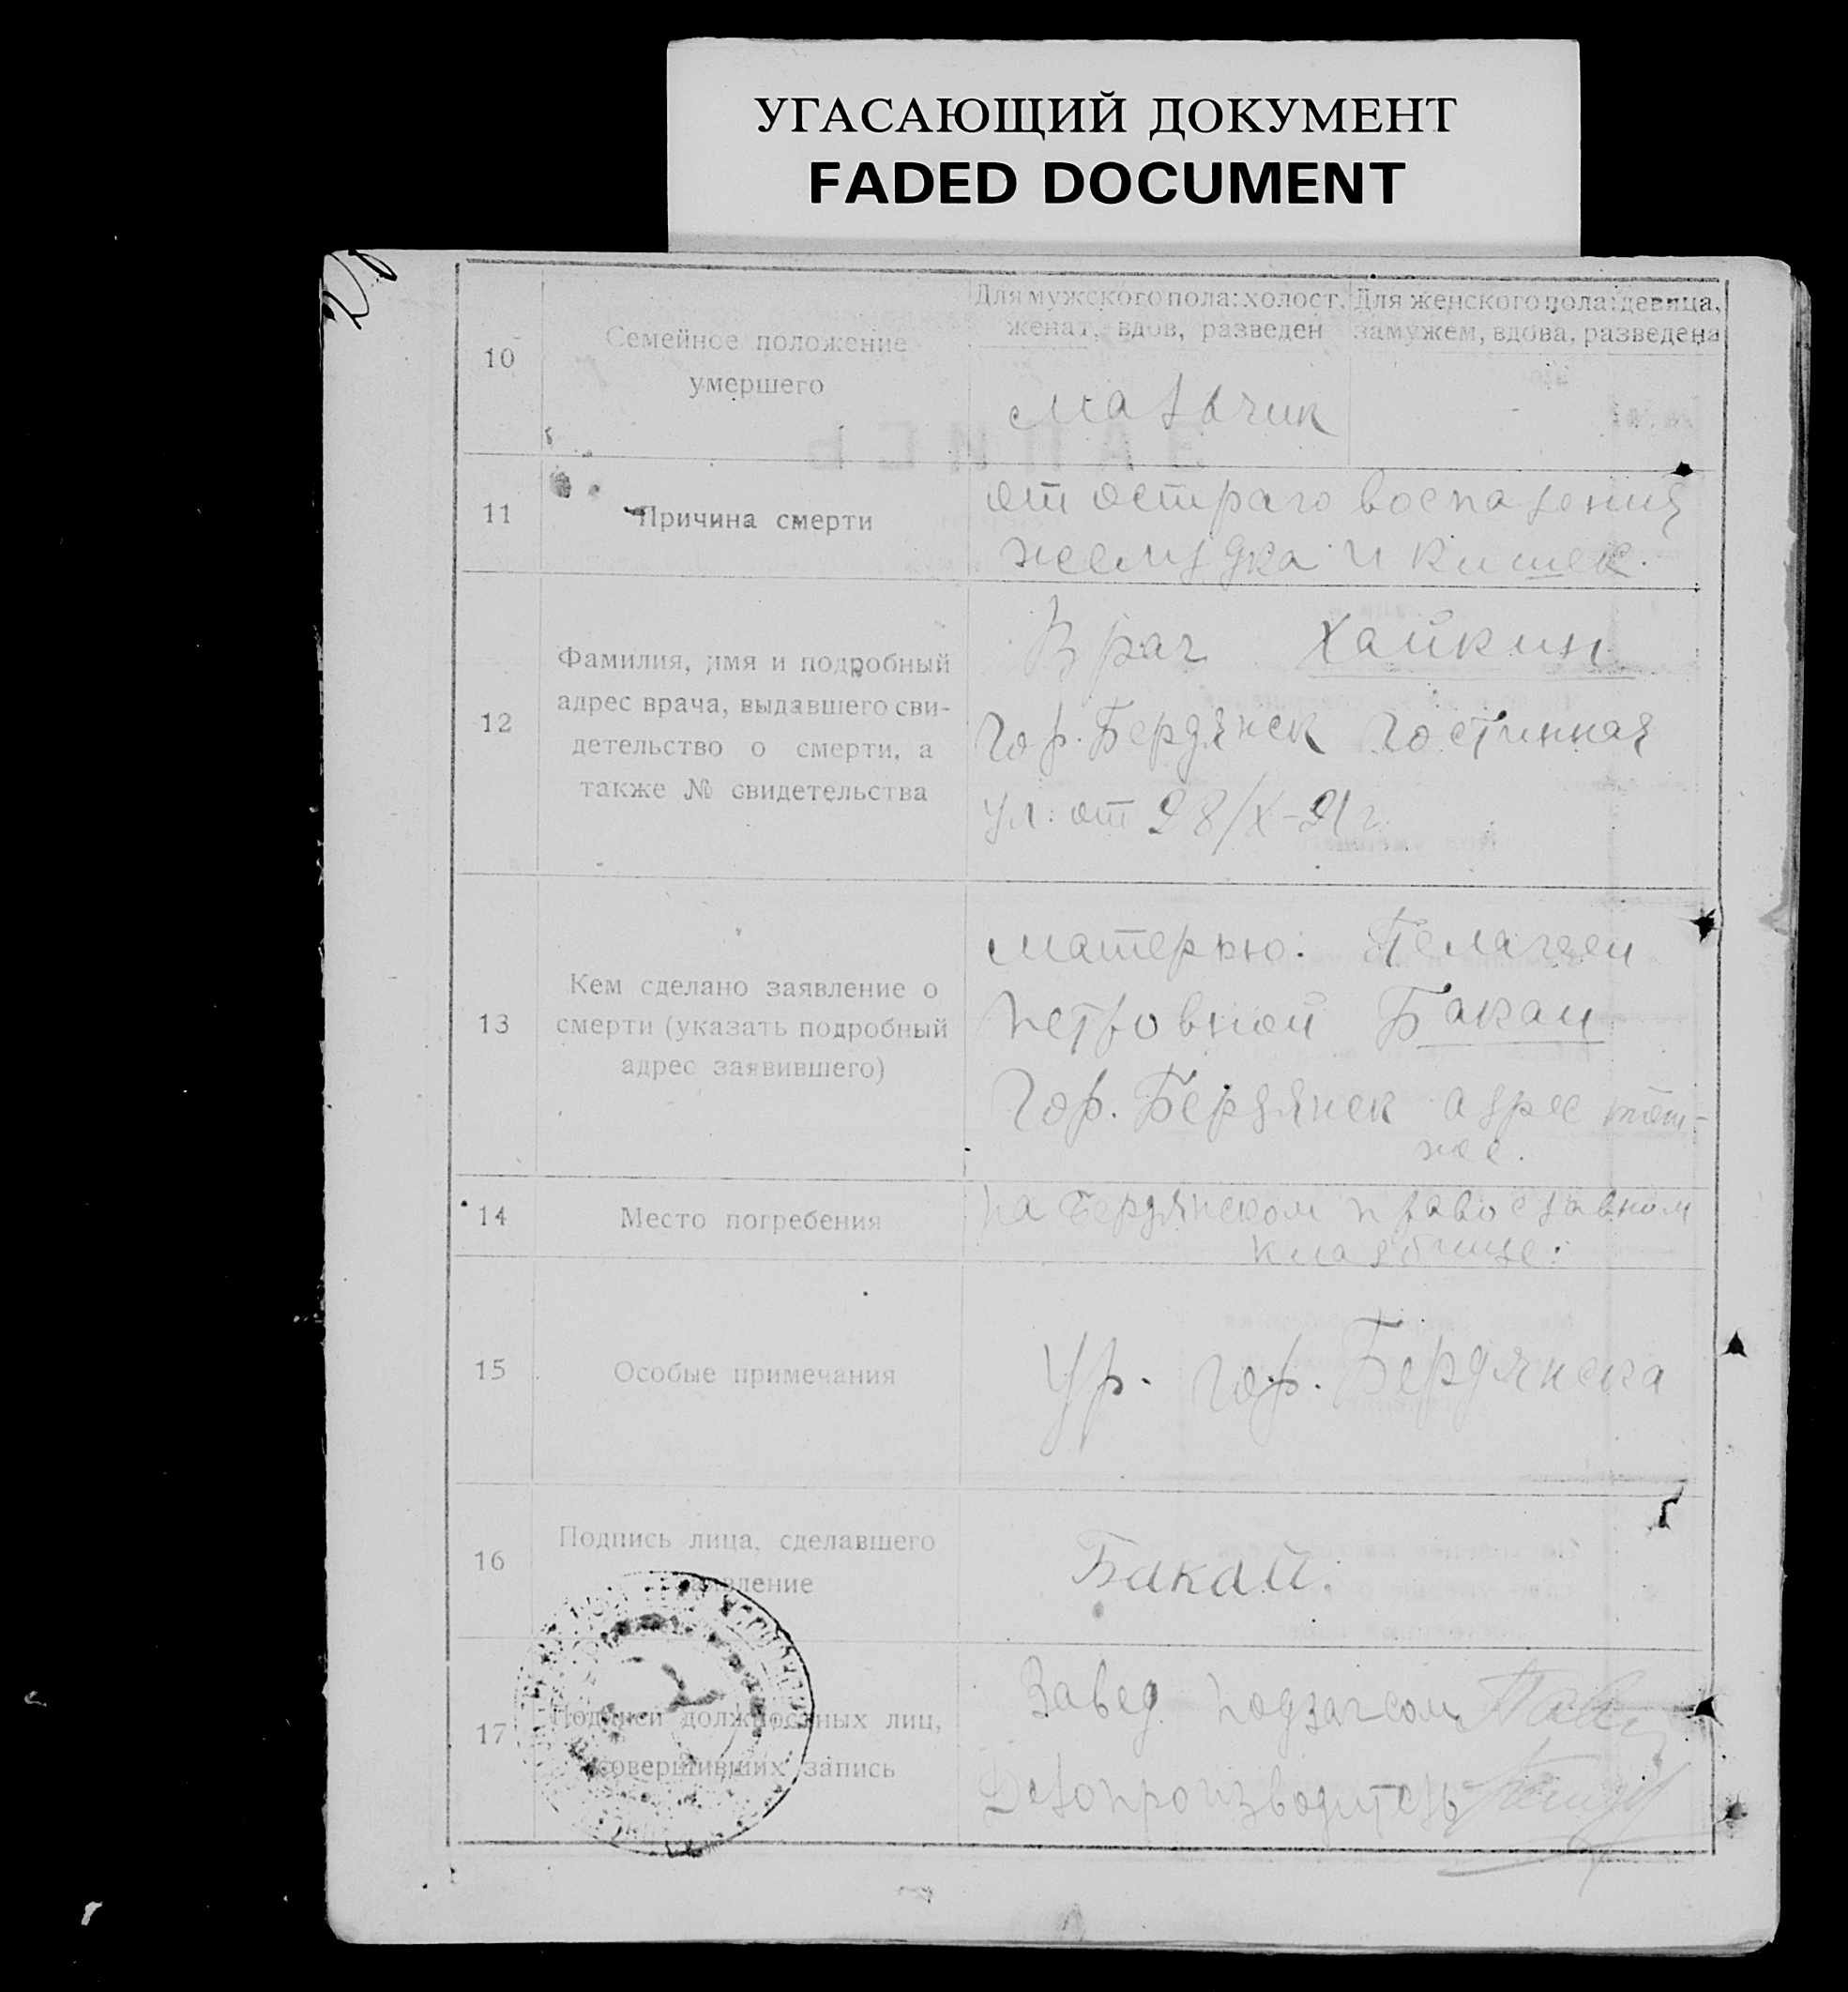 УГАСАЮЩИЙ ДОКУМЕНТ
FADED DOCUMENT
10
Семейное положение
умершего
Для мужского пола: холост,
женат, вдов, разведен
Для женского пола: девица,
замужем, вдова, разведена
мальчик
11
Причина смерти
от остраго воспаления
желудка и кишек.
12
Фамилия, имя и подробный
адрес врача, выдавшего сви-
детельство о смерти, а
также № свидетельства
Врач Хайкин
Гор. Бердянск Гостинная
ул. от 28/X-21 г.
13
Кем сделано заявление о
смерти (указать подробный
адрес заявившего)
матерью. Пелагеей
Петровной Бакай
Гор. Бердянск адрес тот-
же.
14
Место погребения
на Бердянском православном
кладбище.
15
Особые примечания
Ур. гор. Бердянска
16
Подпись лица, сделавшего
заявление
Бакай.
17
Подписи должностных лиц,
совершивших запись
Завед. подзагсом
Делопроизводитель